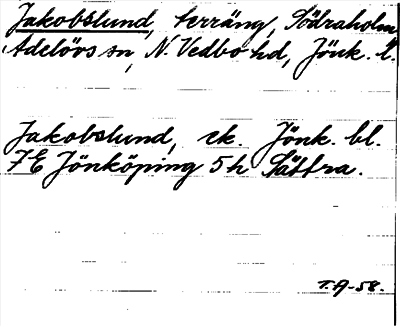 Jakobslund, terräng, Södraholm,
Adelövs sn, N. Vedbo hd, Jönk. l.
Jakobslund, ek. Jönk. bl.
7E Jönköping 5h Sättra.
T.A-58.